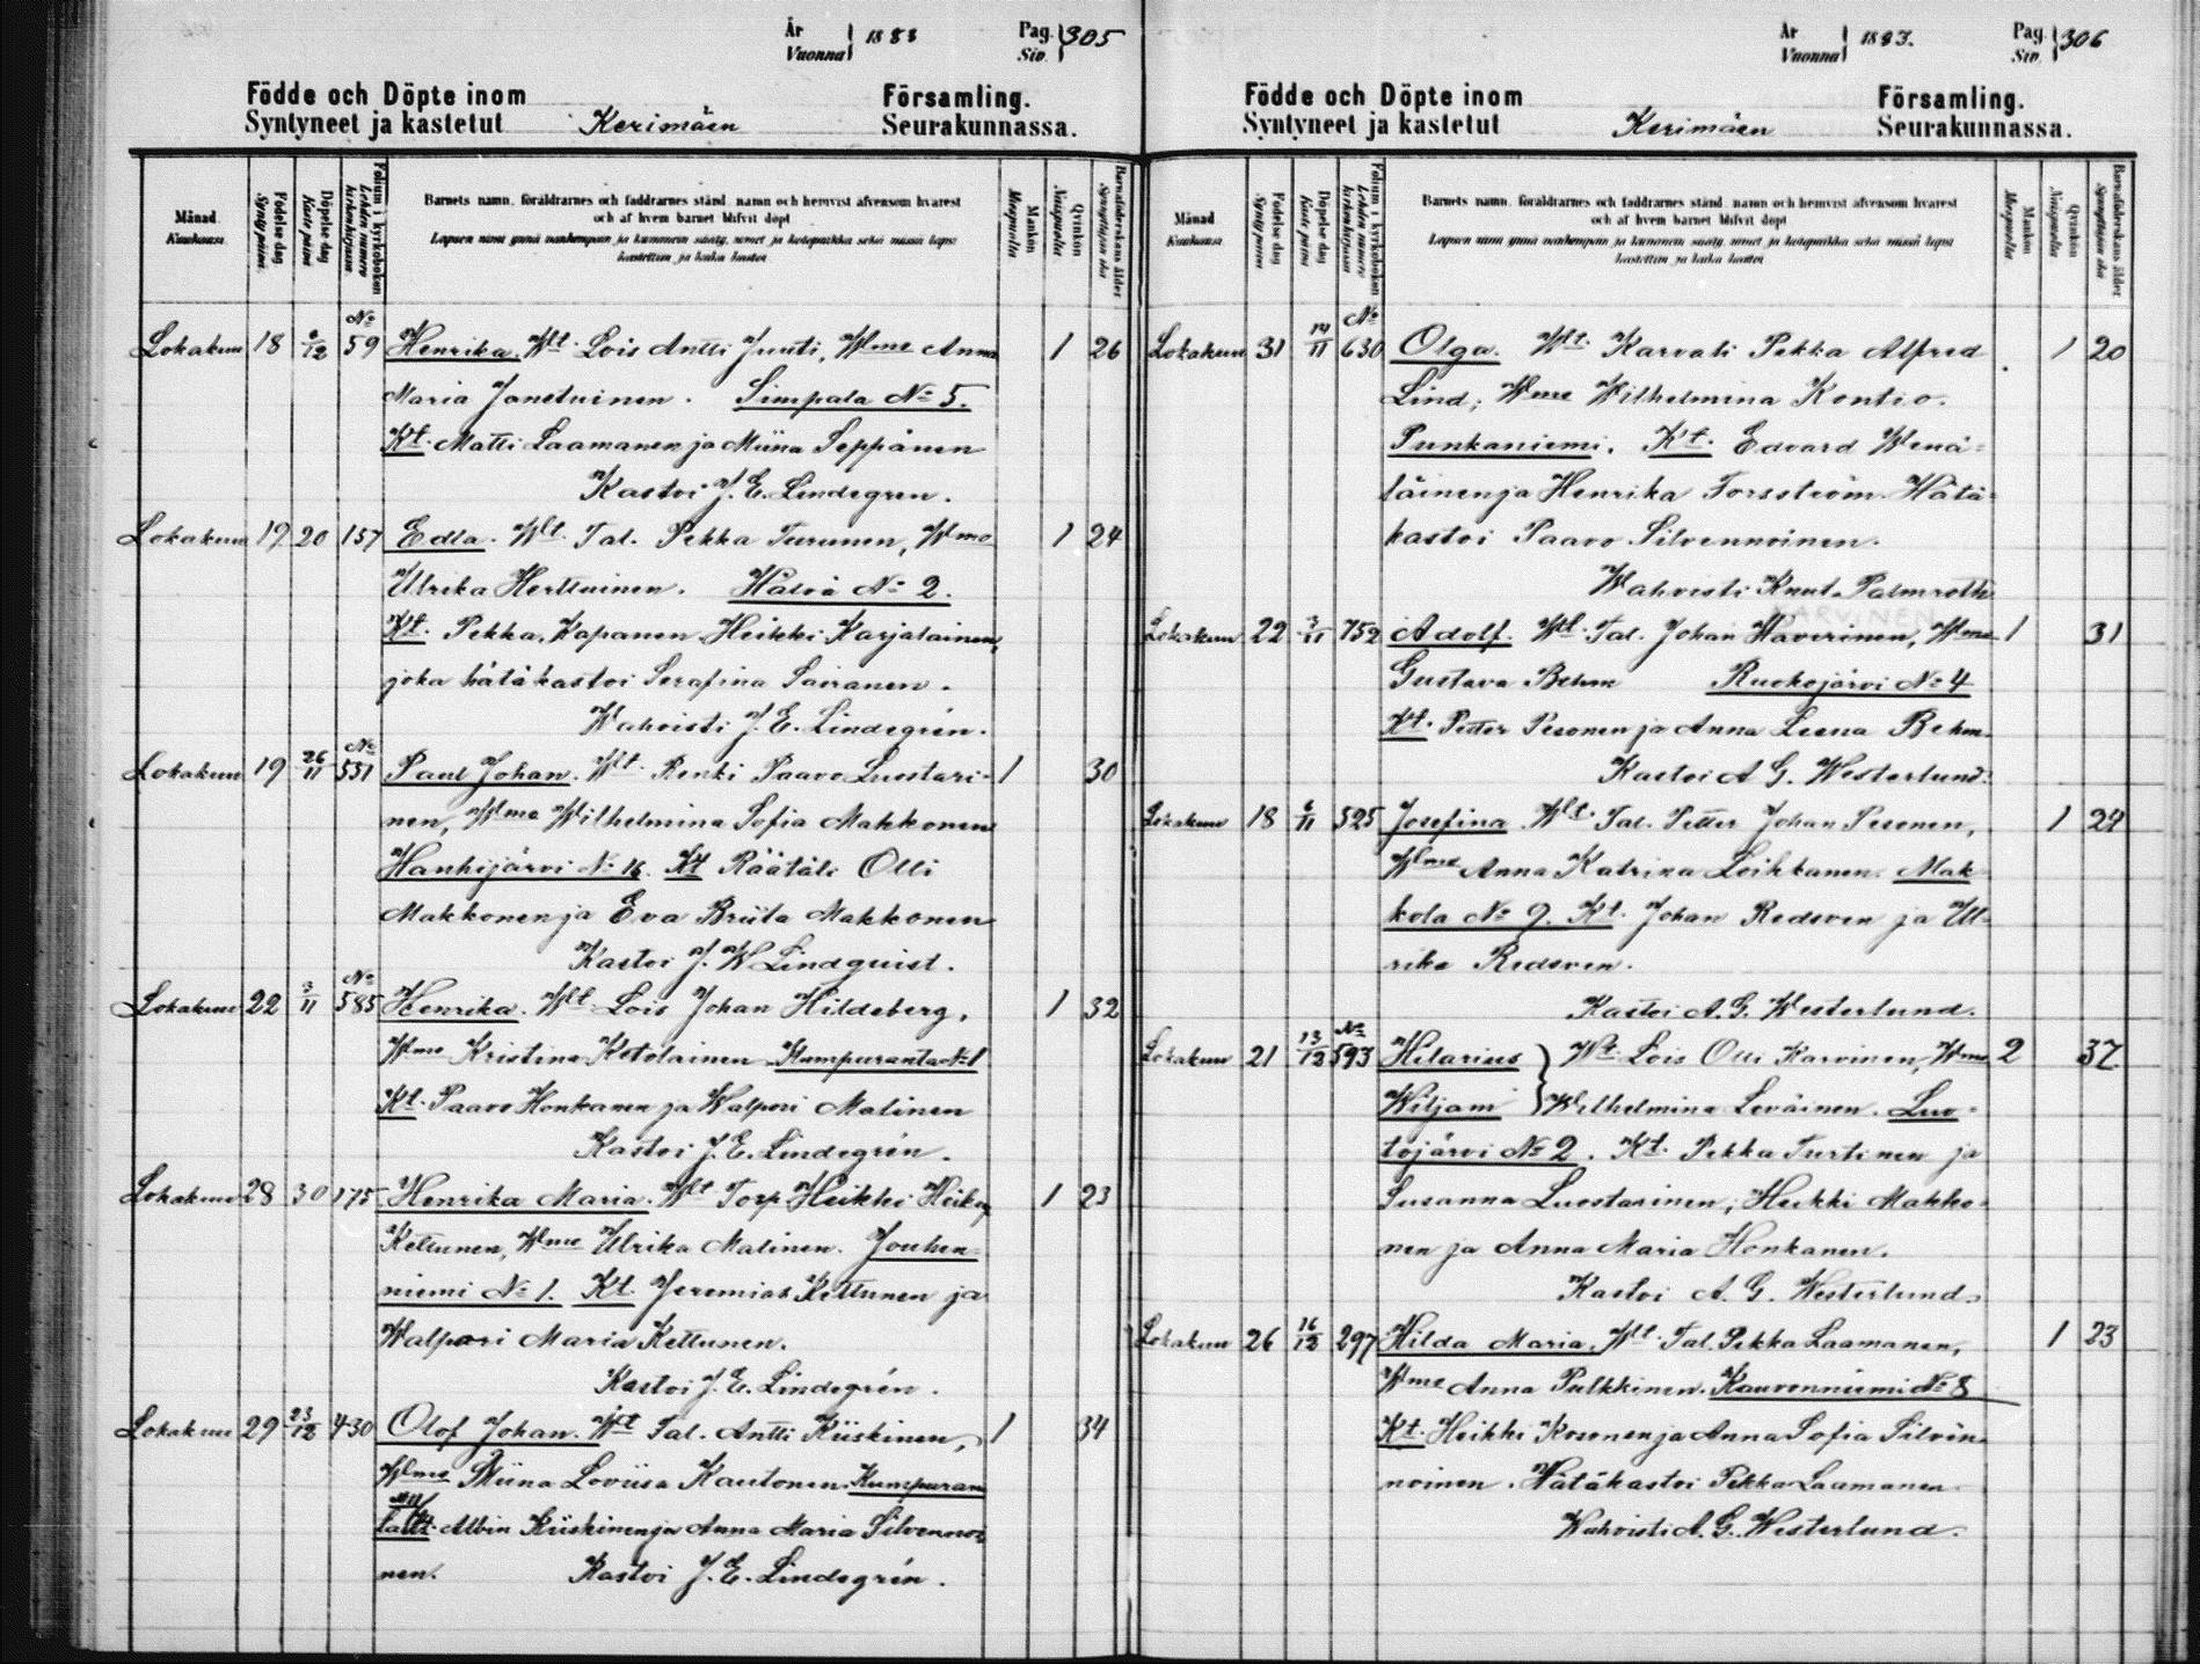 År
Vuonna } 1883
Pag.
Siv. } 305
Födde och Döpte inom Församling.
Syntyneet ja kastetut Kerimäen Seurakunnassa.
Månad
Kuukausi
Födelse dag
Synty päivä
Döpelse dag
Kaste päivä
Folium i kyrkoboken
Lehden numero kirkonkirjassa
Barnets namn, föräldrarnes och faddrarnes stånd, namn och hemvist äfvensom hvarest
och af hvem barnet blifvit döpt
Lapsen nimi ynnä vanhempain ja kummein sääty, nimet ja kotopaikka sekä missä lapsi
kastettiin ja kuka kastoi
Mankön
Miespuolta
Qvinkön
Naispuolta
Barnaföderskans ålder
Synnyttäjän ikä
Lokakuu 18 6/12 No 59 Henrika. Wlt. Lois Antti Juuti, Wlme Anna 1 26
Maria Janetuinen. Simpala No 5.
Kt. Matti Laamanen ja Miina Seppänen
Kastoi J. E. Lindegren.
Lokakuu 19 20 157 Edla. Wlt. Tal. Pekka Turunen, Wlme 1 24
Ulrika Herttuinen. Hälvä No 2.
Kt. Pekka Kapanen Heikki Karjalainen,
joka hätäkastoi Serafina Sairanen.
Wahvisti J. E. Lindegrén.
Lokakuu 19 26/11 No 551 Paul Johan. Wlt. Renki Paavo Luostari- 1 30
nen, Wlme Wilhelmina Sofia Makkonen
Hanhijärvi No 16. Kt Räätäli Olli
Makkonen ja Eva Briita Makkonen
Kastoi J. W Lindquist.
Lokakuu 22 3/11 No 585 Henrika. Wlt Lois Johan Hildeberg, 1 32
Wlme Kristina Ketolainen Kumpuranta No 1
Kt. Paavo Honkanen ja Walpori Matinen
Kastoi J. E. Lindegrén.
Lokakuu 28 30 175 Henrika Maria. Wlt Torp Heikki Heikinp 1 23
Kettunen, Wlme Ulrika Malinen. Jouhen-
niemi No 1. Kt. Jeremias Kettunen ja
Walpori Maria Kettunen.
Kastoi J. E. Lindegrén.
Lokakuu 29 23/12 430 Olof Johan. Wlt Tal. Antti Kiiskinen, 1 34
Wlme Miina Loviisa Kautonen. Kumpuran
ta Kt. Albin Kiiskinen ja Anna Maria Silvennoi
nen. Kastoi J. E. Lindegrén.
År
Vuonna } 1883.
Pag.
Siv. } 306
Födde och Döpte inom Församling.
Syntyneet ja kastetut Kerimäen Seurakunnassa.
Månad
Kuukausi
Födelse dag
Synty päivä
Döpelse dag
Kaste päivä
Folium i kyrkoboken
Lehden numero kirkonkirjassa
Barnets namn, föräldrarnes och faddrarnes stånd, namn och hemvist äfvensom hvarest
och af hvem barnet blifvit döpt
Lapsen nimi ynnä vanhempain ja kummein sääty, nimet ja kotopaikka sekä missä lapsi
kastettiin ja kuka kastoi
Mankön
Miespuolta
Qvinkön
Naispuolta
Barnaföderskans ålder
Synnyttäjän ikä
Lokakuu 31 14/11 No 630 Olga. Wlt. Karvali Pekka Alfred 1 20
Lind; Wlme Wilhelmina Kontio.
Punkaniemi. Kt. Edvard Wenä-
läinen ja Henrika Forsström. Hätä-
kastoi Paavo Silvennoinen.
Wahvisti Knut Palmroth
KARVINEN
Lokakuu 22 3/11 752 Adolf. Wlt. Tal. Johan Haverinen, Wlme 1 31
Gustava Behm Ruokojärvi No 4
Kt. Petter Pesonen ja Anna Leena Behm.
Kastoi A G. Westerlund.
Lokakuu 18 6/11 525 Josefina Wlt. Tal. Petter Johan Pesonen, 1 24
Wlme Anna Katrina Loikkanen. Mak
kola No 9. Kt. Johan Redsven ja Ul-
rika Redsven.
Kastoi A. G. Westerlund.
Lokakuu 21 13/12 No 593 Hilarius } Wlt. Lois Olli Karvinen, Wlme 2 37
Wiljam } Wilhelmina Leväinen. Luo-
tojärvi No 2. Kt. Pekka Turtinen ja
Susanna Luostarinen; Heikki Makko-
nen ja Anna Maria Honkanen.
Kastoi A. G. Westerlund.
Lokakuu 26 16/12 297 Hilda Maria. Wlt. Tal. Pekka Laamanen, 1 23
Wlme Anna Pulkkinen. Kauvonniemi No 8
Kt. Heikki Kosonen ja Anna Sofia Silvén-
noinen. Hätäkastoi Pekka Laamanen
Wahvisti A. G. Westerlund.